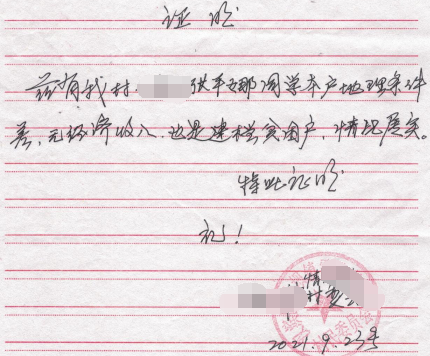 证明
兹有我村 张平娜同学本户地理条件
差,无经济收入,也是建档贫困户,情况属实。
特此证明
礼!
情
村
2021.9.23号